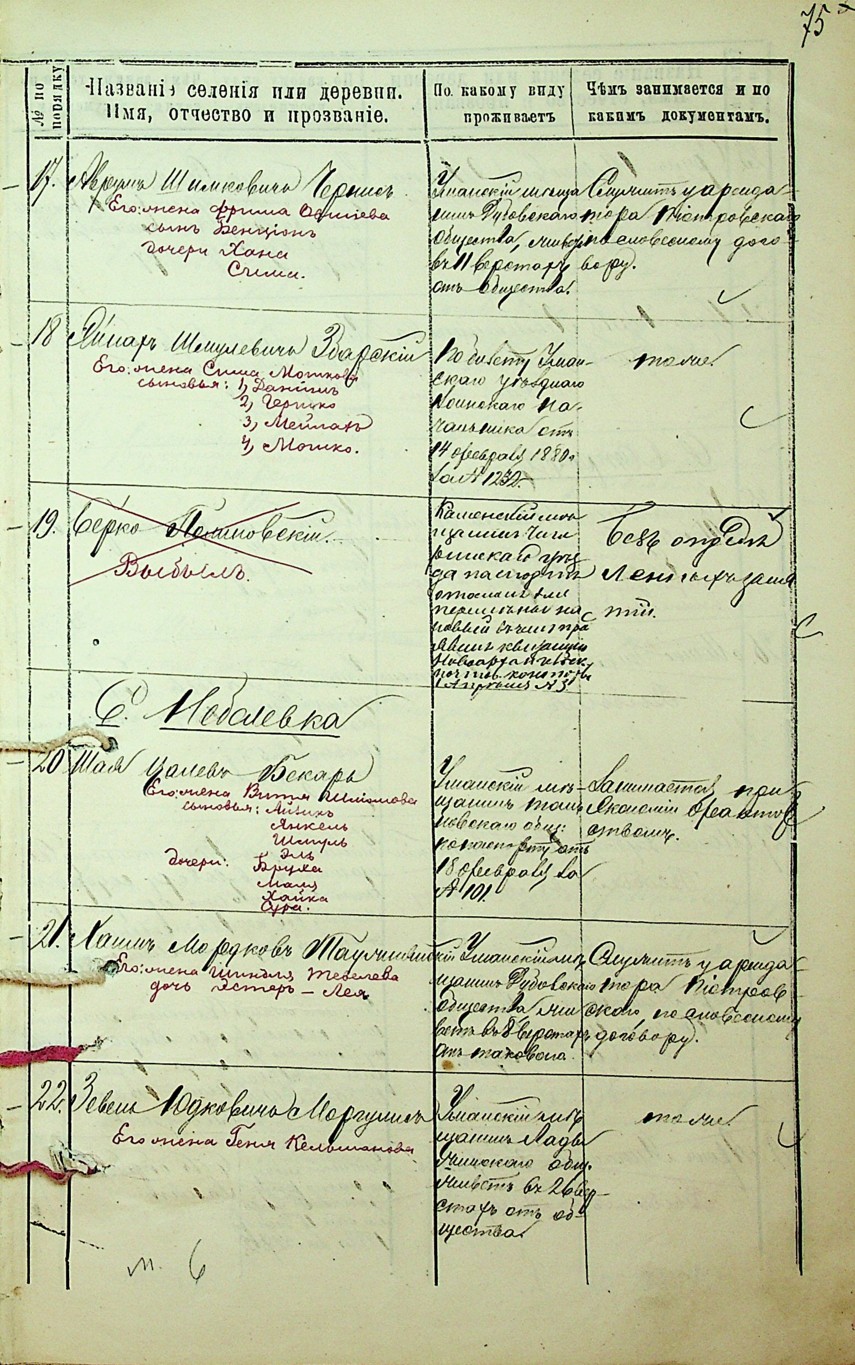 75
№ по порядку
Названіе селенія или деревни.
Имя, отчество и прозваніе.
По какому виду
проживаетъ
Чѣмъ занимается и по
какимъ документамъ.
17. Аврумъ Шимковичъ Чернисъ
Его: жена Фрима
сынъ Бенціонъ
дочери Хана
Сима.
Уманскій мѣща
нинъ Дубовскаго
общества, живетъ
въ 11 верстахъ
отъ общества.
Служитъ у аренда-
тора Піотровскаго
по словесному дого-
вору.
18 Айнаръ Шмулевичъ Збарскій
Его: жена Сима Мошкова
сыновья: 1, Даніилъ
2, Гершко
3, Мейлахъ
4, Мошко.
По билету Уман-
скаго уѣзднаго
воинскаго На-
чальника отъ
14 февраля 1880 г.
за № 1232.
тоже.
19. Берко
Выбылъ.
Каменскій мѣ
щанинъ Чиги
ринскаго уѣз
да паспортъ
отосланъ для
перемѣны на
новый
Безъ опредѣ
ленныхъ заня
тій.
С. Кобалевка
20 Шая Цалевъ Бекаръ
Его: жена Витя Шліомова
сыновья: Айзикъ
Янкель
Шмуль
Эль
дочери: Бруха
Маля
Хайка
Сура.
Уманскій мѣ-
щанинъ Таль
новскаго общ:
отъ
18 февраля за
№ 101.
Занимается при
Экономіи факторъ
ствомъ.
21. Хаимъ Мордковъ
Его: жена
дочь Эстеръ - Лея
Уманскій мѣ
щанинъ Дубовскаго
общества жи
ветъ въ 8 верстахъ
отъ таковаго.
Служитъ у аренда-
тора Піотров-
скаго по словесному
договору.
22. Зевель Юдковичъ Моргулисъ
Его: жена Геня Кельмановна
Уманскій мѣ
щанинъ Лады
жинскаго общ.
живетъ въ 26 вер-
стахъ отъ об-
щества.
тоже.
м. 6